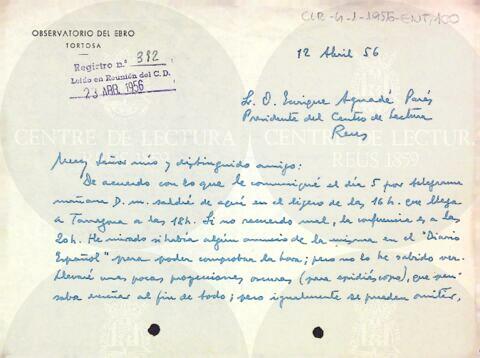 CLR-4-1-1956-ENT/100
OBSERVATORIO DEL EBRO
TORTOSA
Registro n.º 382
Leído en Reunión del C.D.
23 ABR. 1956
12 Abril 56
Sr. D. Enrique Aguadé Parés
Presidente del Centro de Lectura
Reus
CENTRE DE LECTURA
REUS 1859
CENTRE DE LECTUR
REUS 1859
Muy Señor mío y distinguido amigo:
De acuerdo con lo que le comuniqué el día 5 por telegrama
mañana D. m. saldré de aquí en el ligero de las 16 h. que llega
a Tarragona a las 18h. Si no recuerdo mal, la conferencia es a las
20h. He mirado si había algún anuncio de la misma en el "Diario
Español" para poder comprobar la hora; pero no lo he sabido ver.
Llevaré unas pocas proyecciones oscuras (para epidiáscopo), que pen-
saba enseñar al fin de todo; pero igualmente se pueden omitir,